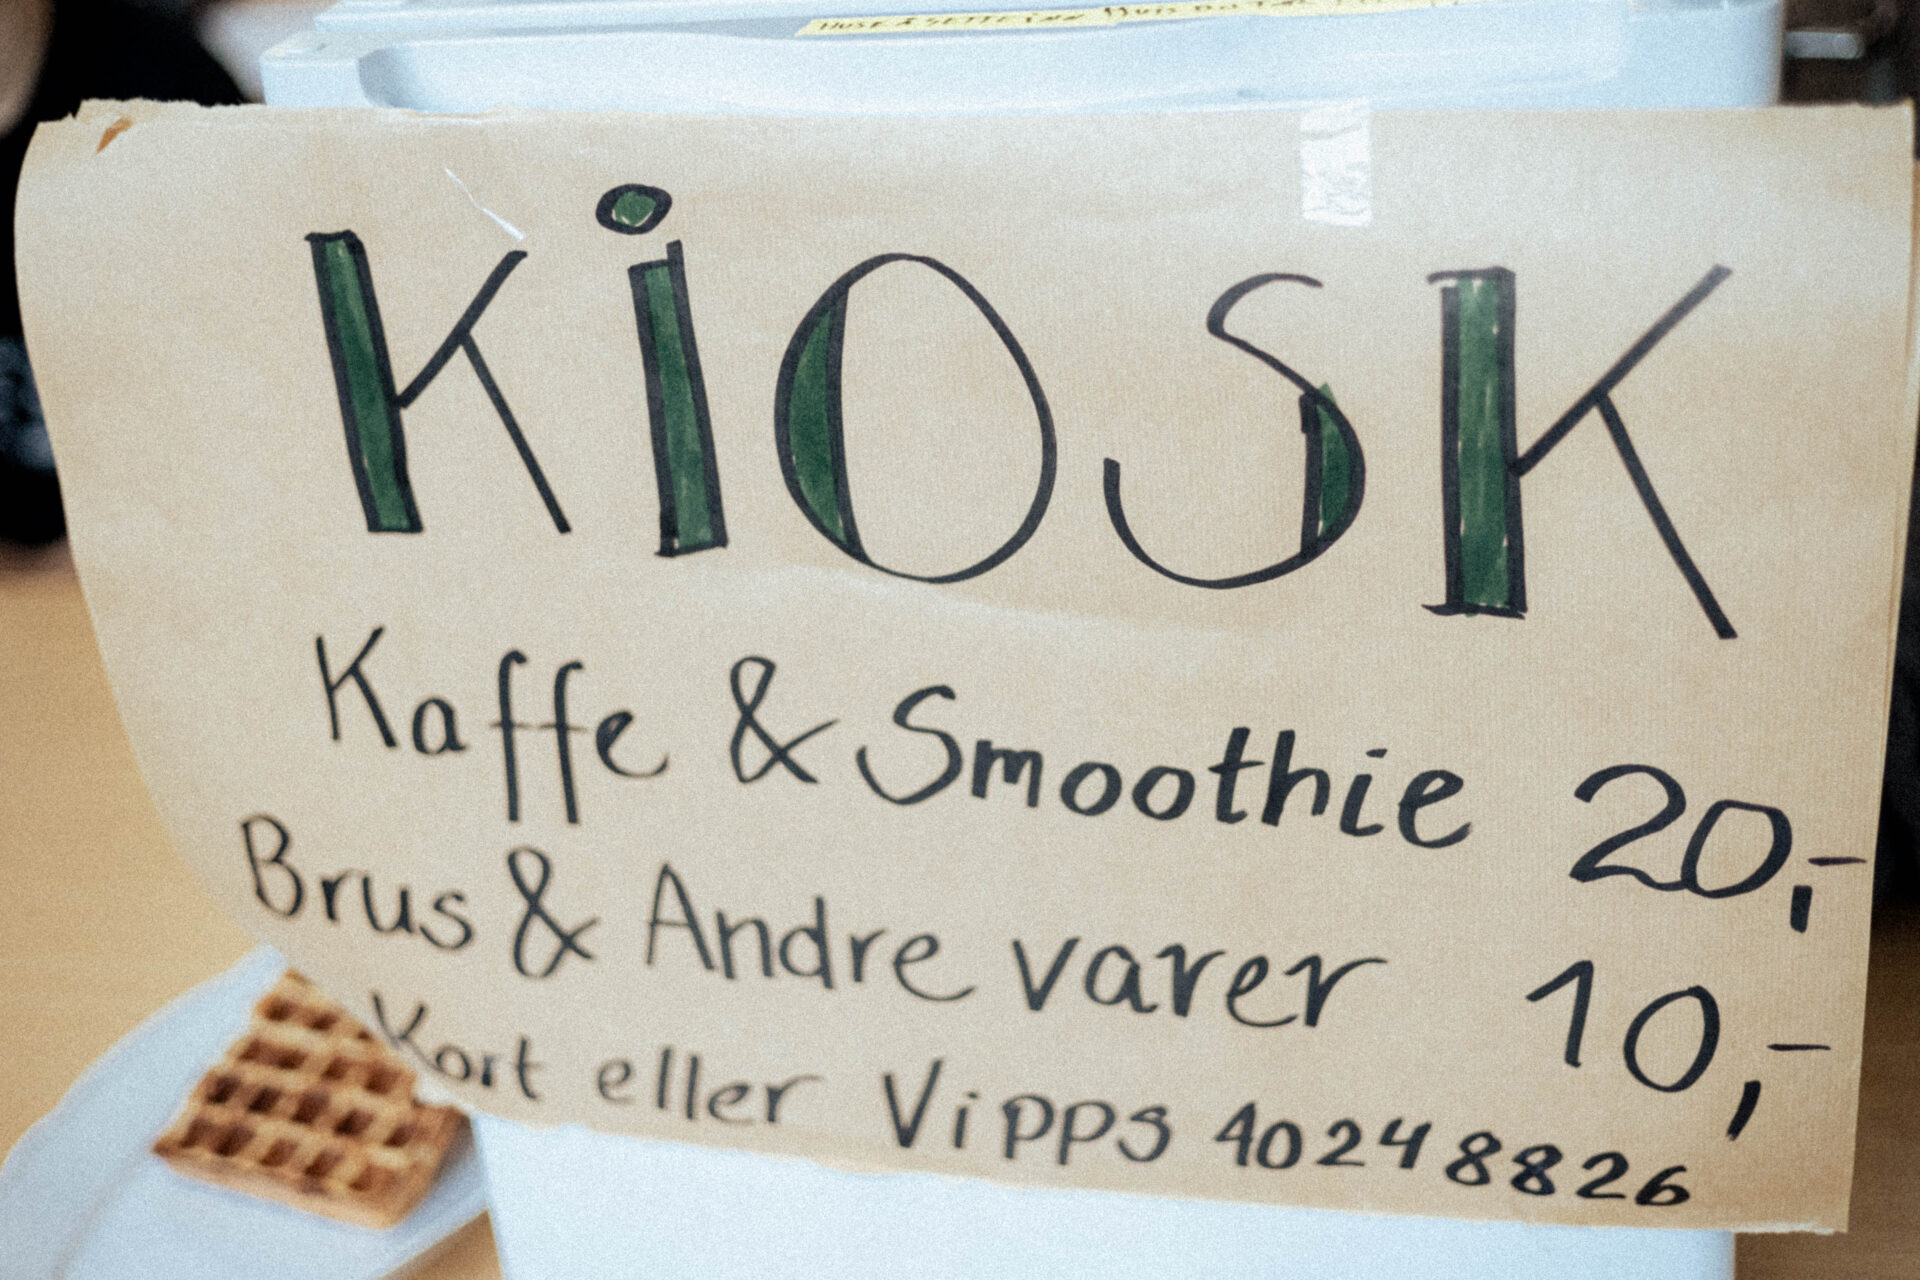 KiOSK
Kaffe & Smoothie 20,-
Brus & Andre varer 10,-
Kort eller Vipps 40248826